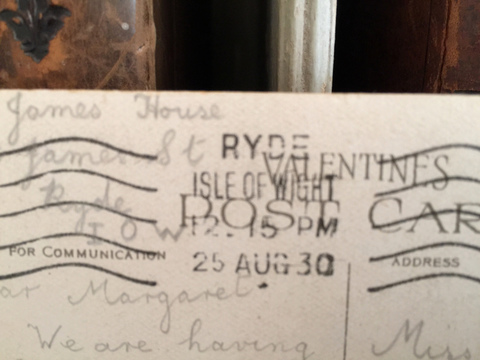 James House
James St
Ryde
I O W
RYDE
ISLE OF WIGHT
12.15 PM
25 AUG 30
VALENTINES
POST CAR
FOR COMMUNICATION
ADDRESS
ar Margaret.
We are having
Miss